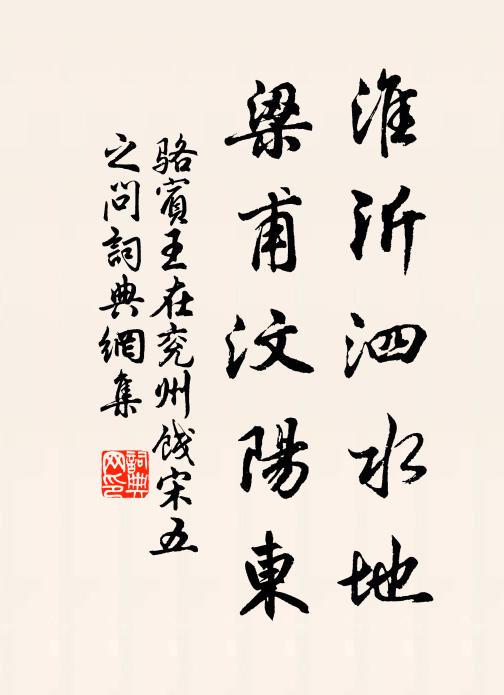 淮沂泗水地
梁甫汶陽東
骆賓王在兖州饯宋五
之问詞典網集
詞典网印